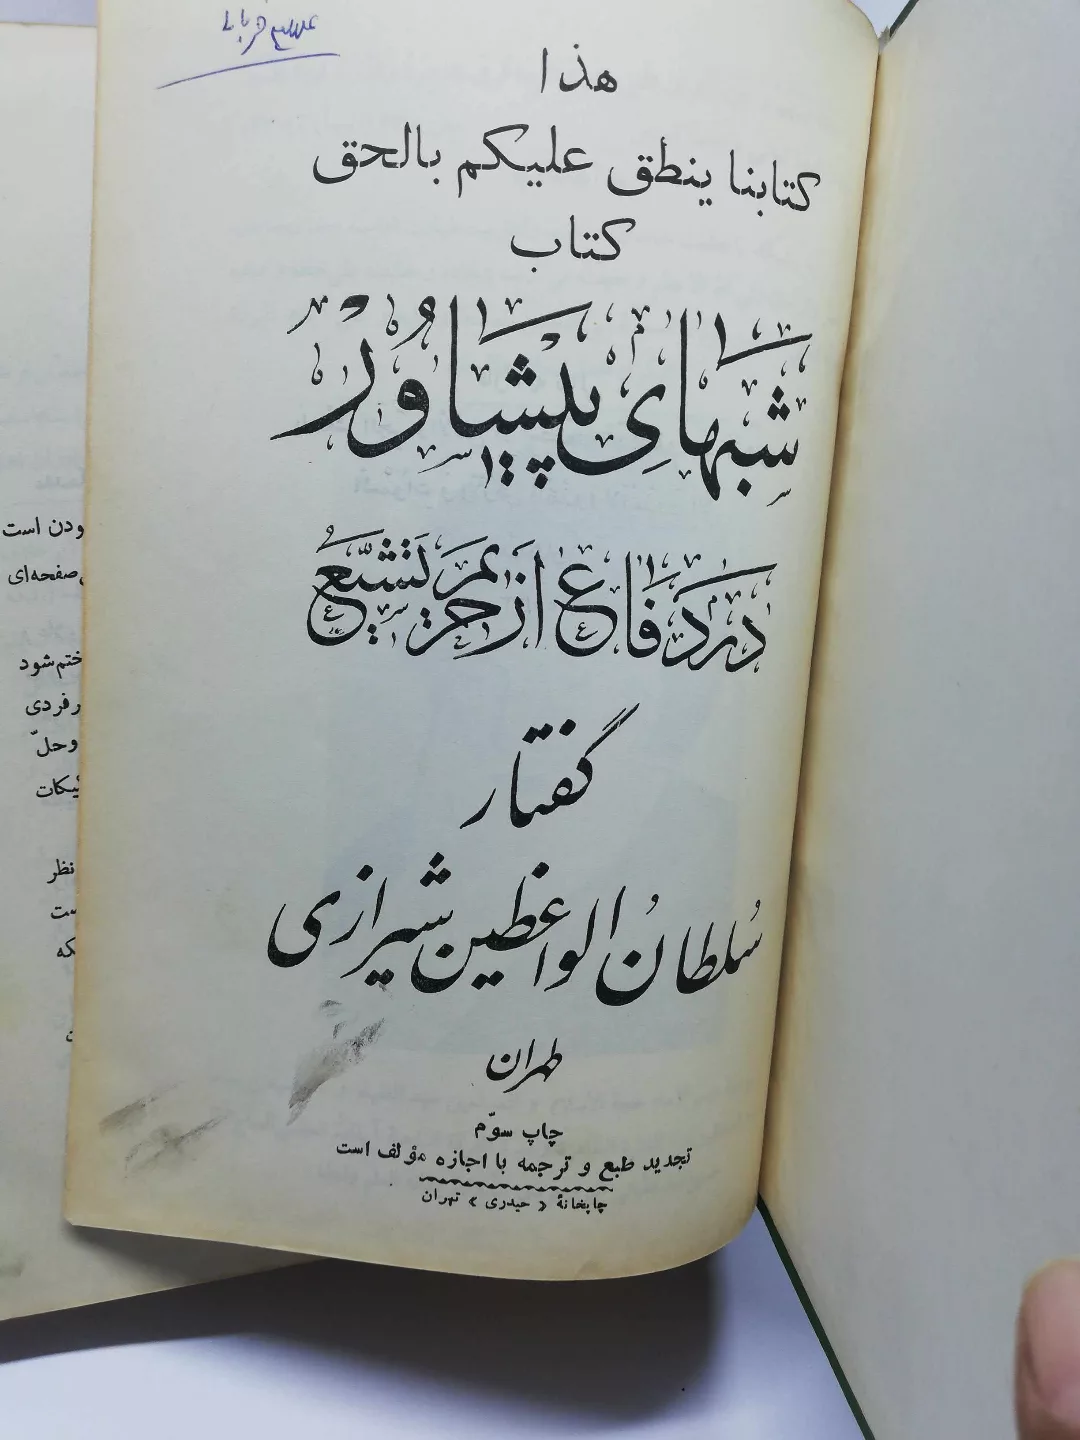 هذا
كتابنا ينطق عليكم بالحق
كتاب
شبهایِ پیشاوُر
در دفاع از حریم تشیّع
گفتار
سُلطانُ الواعظین شیرازی
طهران
چاپ سوّم
تجدید طبع و ترجمه با اجازه مؤلف است
چاپخانهٔ «حیدری» تهران
ودن است
صفحه‌ای
ختم شود
ر فردی
و حلّ
نظر
ست
که